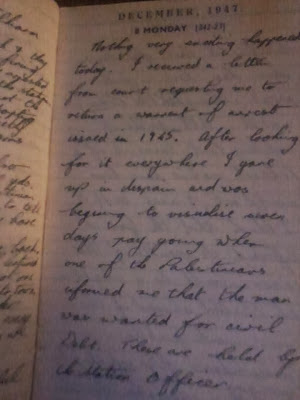 DECEMBER, 1947
8 MONDAY (342-23)
Nothing very exciting happened
today. I received a letter
from court requesting me to
return a warrant of arrest
issued in 1945. After looking
for it everywhere I gave
up in despair and was
begining to visualise seven
days pay going when
one of the Palestinians
informed me that the man
was wanted for civil
Debt. These are held by
the Station Officer